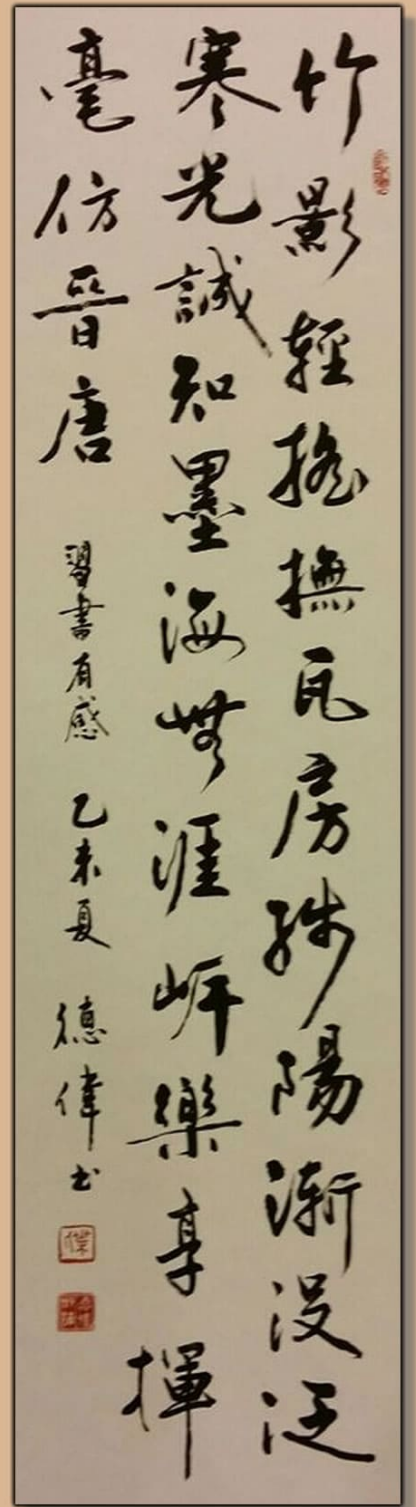 竹影輕搖撫瓦房殘陽漸沒泛
寒光誠知墨海無涯岸樂享揮
毫仿晉唐 習書有感 乙未夏 德偉书